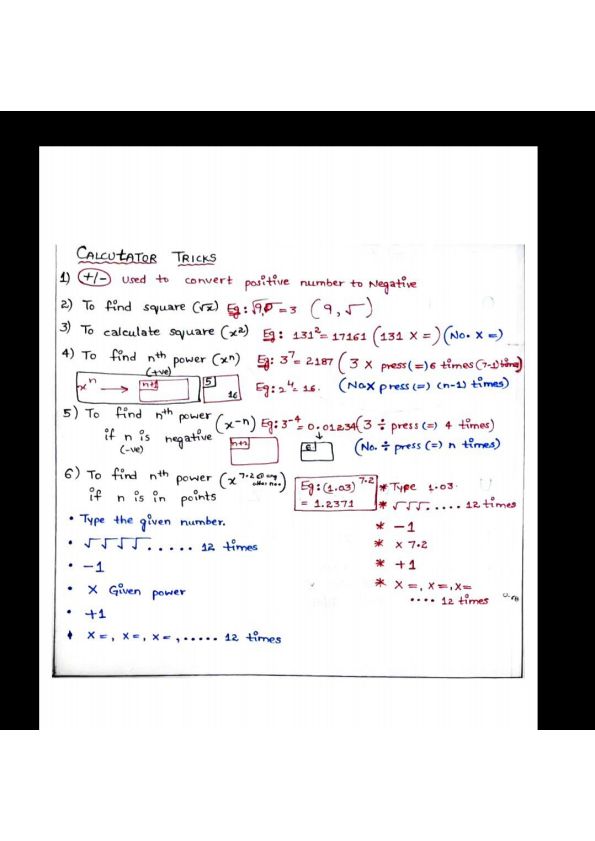 CALCUTATOR TRICKS
1) +/- Used to convert positive number to Negative
2) To find square (√x) Eg: √9 = 3 (9, √)
3) To calculate square (x²) Eg: 131² = 17161 (131 X =) (No. X =)
4) To find nth power (xⁿ) Eg: 3⁷ = 2187 (3 X press (=) 6 times (7-1) time)
(+ve)
xⁿ → n+1 5 16 Eg: 2⁴ = 16. (No X press (=) (n-1) times)
5) To find nth power (x⁻ⁿ) Eg: 3⁻⁴ = 0.01234 (3 ÷ press (=) 4 times)
if n is negative n+2 6 (No. ÷ press (=) n times)
(-ve)
6) To find nth power (x^7.2 or any other no.)
if n is in points
Eg: (1.03)^7.2
= 1.2371
* Type 1.03.
* √√√..... 12 times
* -1
* x 7.2
* +1
* X =, X =, X =
.... 12 times
• Type the given number.
• √√√√..... 12 times
• -1
• X Given power
• +1
• X =, X =, X =, ..... 12 times